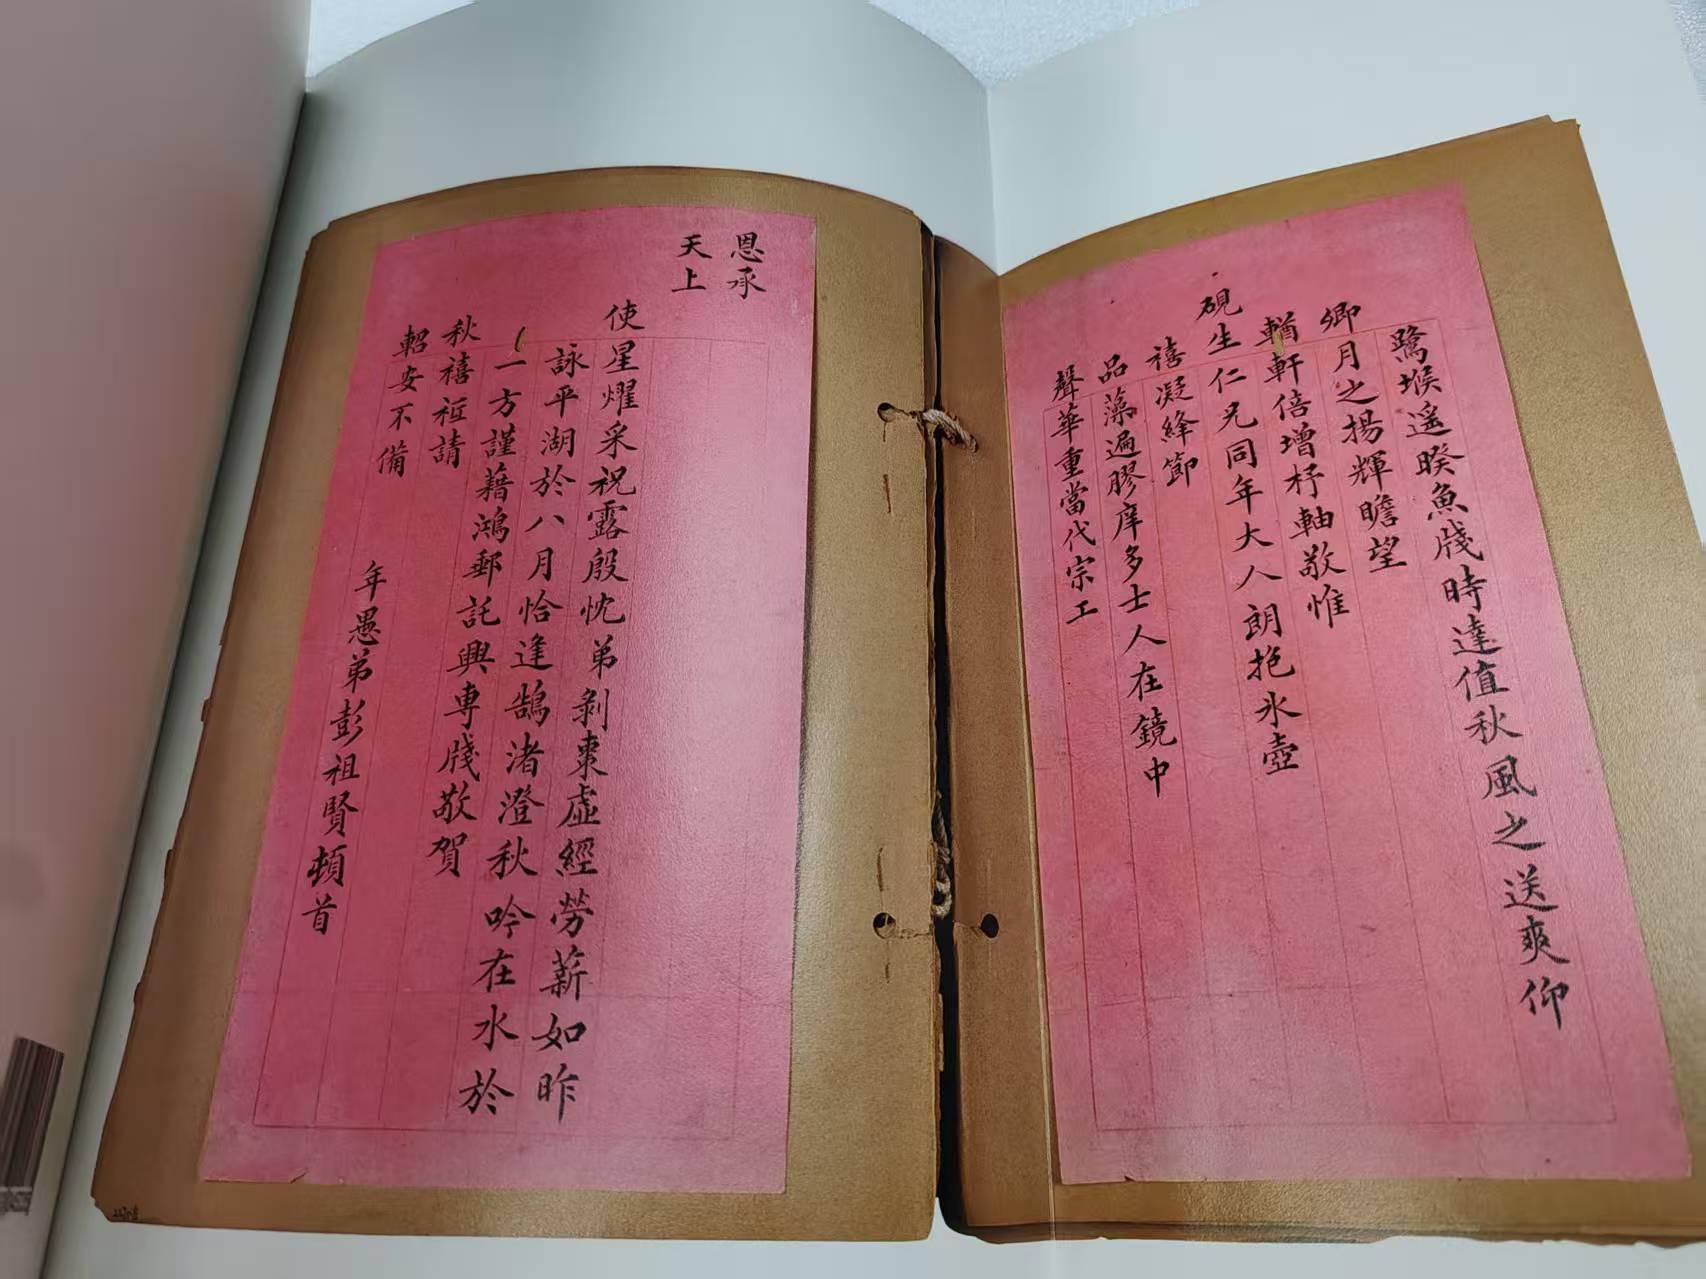 鷺堠遥睽魚牋時達值秋風之送爽仰
卿月之揚輝瞻望
輶軒倍增杼軸敬惟
硯生仁兄同年大人朗抱氷壺
禧凝絳節
品藻遍膠庠多士人在鏡中
聲華重當代宗工
恩承
天上
使星燿采祝露殷忱弟剝棗虛經勞薪如昨
詠平湖於八月恰逢鵠渚澄秋吟在水於
一方謹藉鴻郵託興專牋敬賀
秋禧祗請
軺安不備
年愚弟彭祖賢頓首